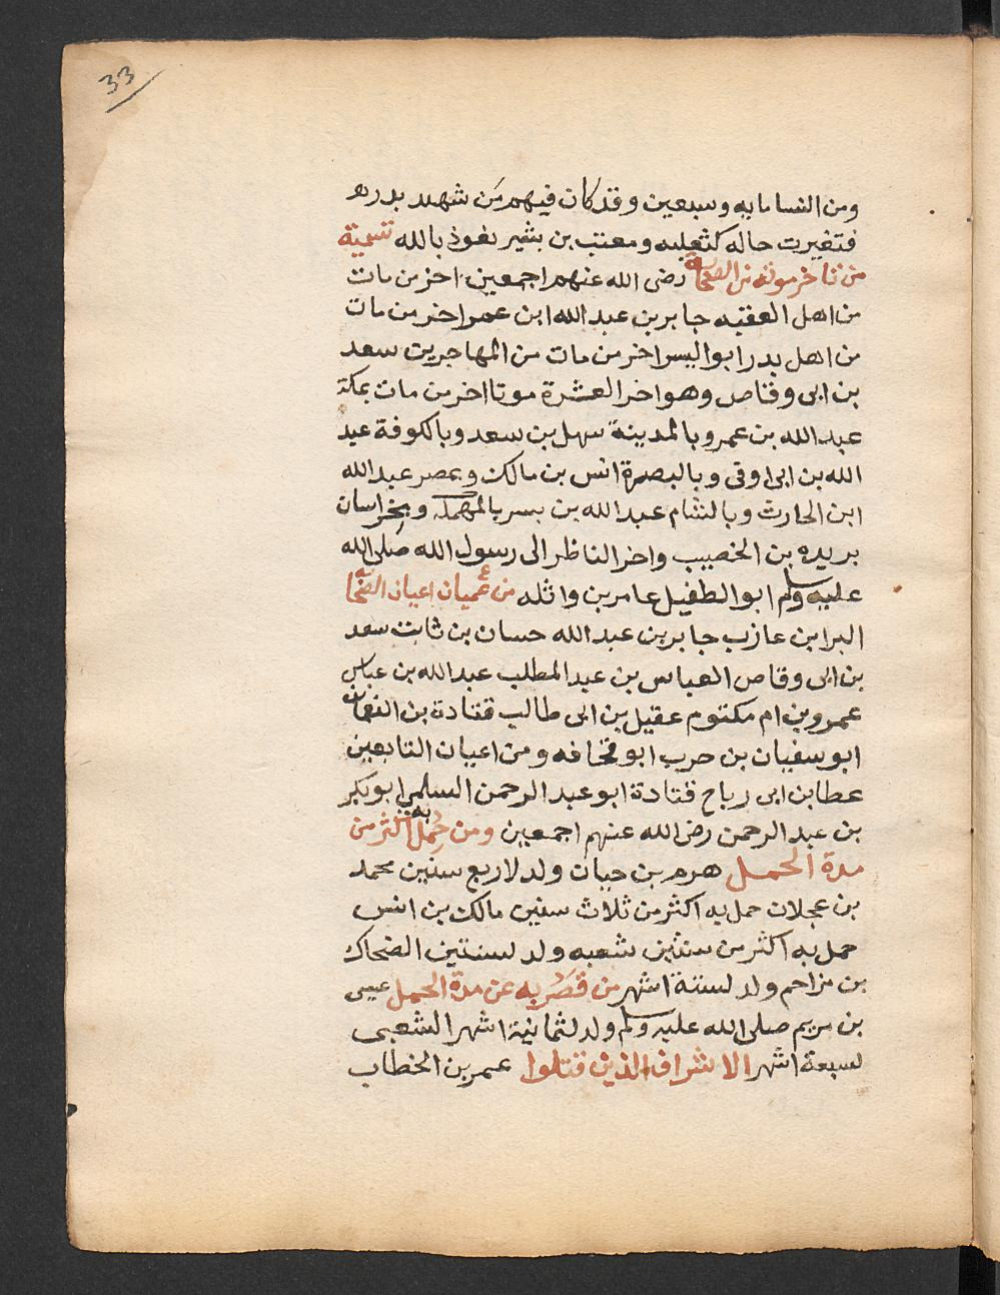 33
ومن النسا مايه وسبعين وقد كان فيهم من شهد بدرا
فتغيرت حاله كثعلبه ومعتب بن بشير نعوذ بالله تسمية
من تاخر موته من الصحابة رضى الله عنهم اجمعين اخر من مات
من اهل العقبه جابر بن عبد الله ابن عمر اخر من مات
من اهل بدر ابو اليسر اخر من مات من المهاجرين سعد
بن ابى وقاص وهو اخر العشرة موتا اخر من مات بمكة
عبد الله بن عمر وبالمدينة سهل بن سعد وبالكوفة عبد
الله بن ابى اوفى وبالبصرة انس بن مالك وبمصر عبد الله
ابن الحارث وبالشام عبد الله بن بسر بالمهملة وبخراسان
بريده بن الخصيب واخر الناظر الى رسول الله صلى الله
عليه وسلم ابو الطفيل عامر بن واثله من عميان اعيان الصحابه
البرا بن عازب جابر بن عبد الله حسان بن ثابت سعد
بن ابى وقاص العباس بن عبد المطلب عبد الله بن عباس
عمرو بن ام مكتوم عقيل بن ابى طالب قتادة بن النعمان
ابو سفيان بن حرب ابو قحافه ومن اعيان التابعين
عطا بن ابى رباح قتادة ابو عبد الرحمن السلمي ابو بكر
بن عبد الرحمن رضى الله عنهم اجمعين ومن حمل به اكثر من
مدة الحمل هرم بن حيان ولد لاربع سنين محمد
بن عجلان حمل به اكثر من ثلاث سنين مالك بن انس
حمل به اكثر من سنتين شعبه ولد لسنتين الضحاك
بن مزاحم ولد لستة اشهر من قصر به عن مدة الحمل عيسى
بن مريم صلى الله عليه وسلم ولد لثمانية اشهر الشعبى
لسبعة اشهر الاشراف الذين قتلوا عمر بن الخطاب